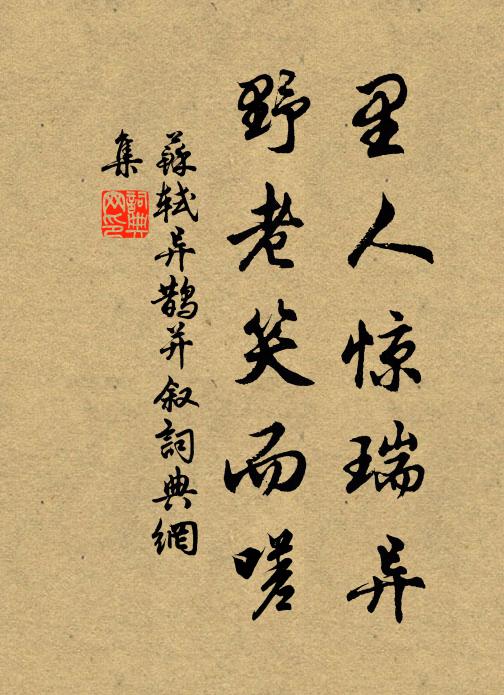 里人惊瑞异
野老笑而嗟
蘇轼异鹊并叙詞典網
集
詞典
网印